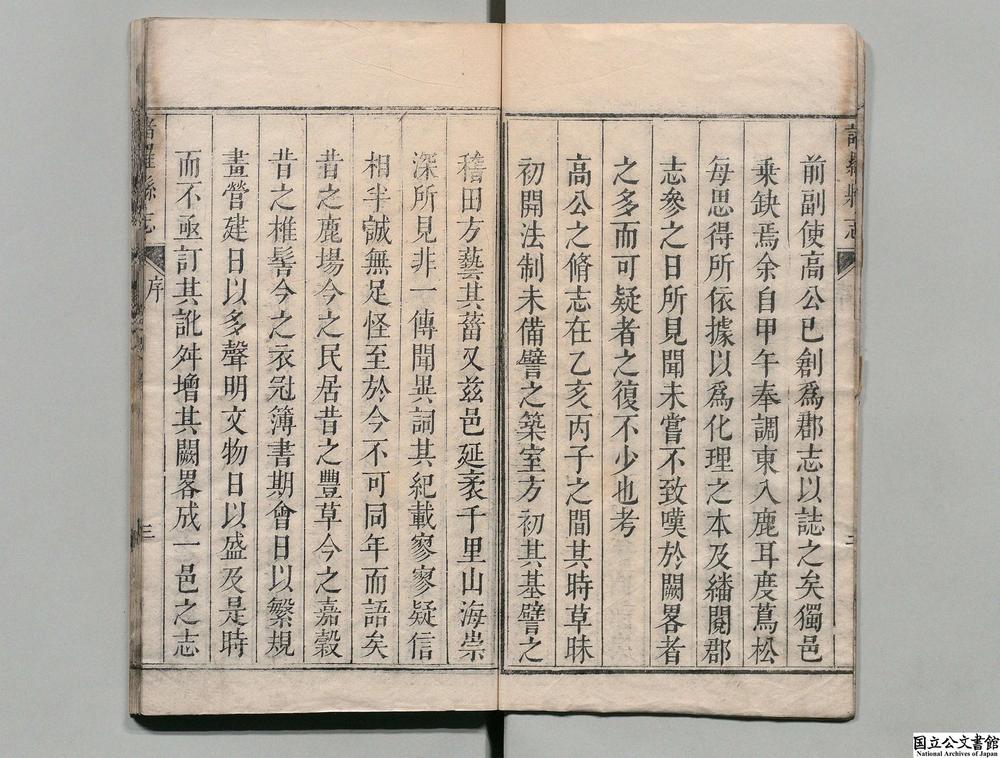 諸羅縣志
二
前副使高公已創爲郡志以誌之矣獨邑
乗缺焉余自甲午奉調東入鹿耳度蔦松
每思得所依據以爲化理之本及繙閱郡
志參之日所見聞未嘗不致嘆於闕畧者
之多而可疑者之復不少也考
高公之脩志在乙亥丙子之間其時草昧
初開法制未備譬之築室方初其基譬之
稽田方藝其菑又兹邑延袤千里山海崇
深所見非一傳聞異詞其紀載寥寥疑信
相半誠無足怪至於今不可同年而語矣
昔之鹿場今之民居昔之豐草今之嘉穀
昔之椎髻今之衣冠簿書期會日以繁規
畫營建日以多聲明文物日以盛及是時
而不亟訂其訛舛增其闕畧成一邑之志
諸羅縣志
序
三
国立公文書館
National Archives of Japan